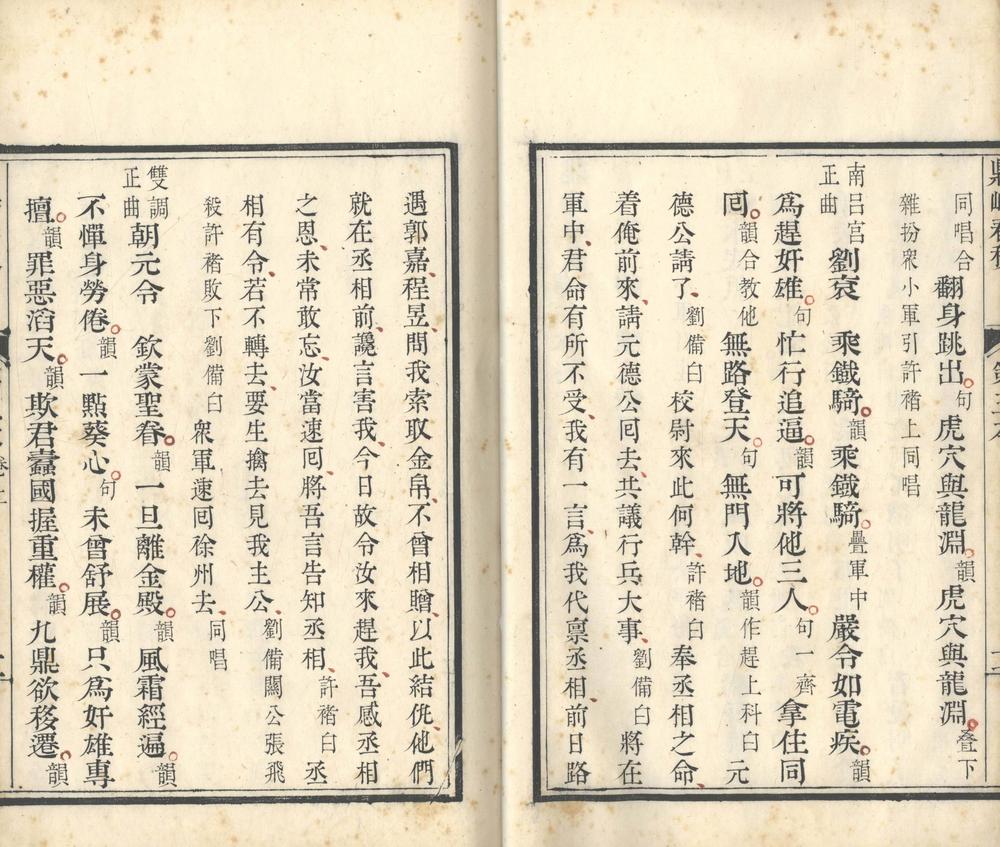 鼎峙春秋
同唱合翻身跳出句虎穴與龍淵韻虎穴與龍淵叠下
雜扮衆小軍引許褚上同唱
南呂宮正曲劉袞乘鐵騎韻乘鐵騎疊軍中嚴令如電疾韻
爲趕奸雄句忙行追逼韻可將他三人句一齊拿住同
囘韻合教他無路登天句無門入地韻作趕上科白元
德公請了劉備白校尉來此何幹許褚白奉丞相之命
着俺前來請元德公囘去共議行兵大事劉備白將在
軍中君命有所不受我有一言爲我代禀丞相前日路
遇郭嘉程昱問我索取金帛不曾相贈以此結仇他們
就在丞相前讒言害我今日故令汝來趕我吾感丞相
之恩未常敢忘汝當速囘將吾言告知丞相許褚白丞
相有令若不轉去要生擒去見我主公劉備關公張飛
殺許褚敗下劉備白衆軍速囘徐州去同唱
雙調正曲朝元令欽蒙聖眷韻一旦離金殿韻風霜經遍韻
不憚身勞倦韻一點葵心句未曾舒展韻只爲奸雄專
擅韻罪惡滔天韻欺君蠹國握重權韻九鼎欲移遷韻